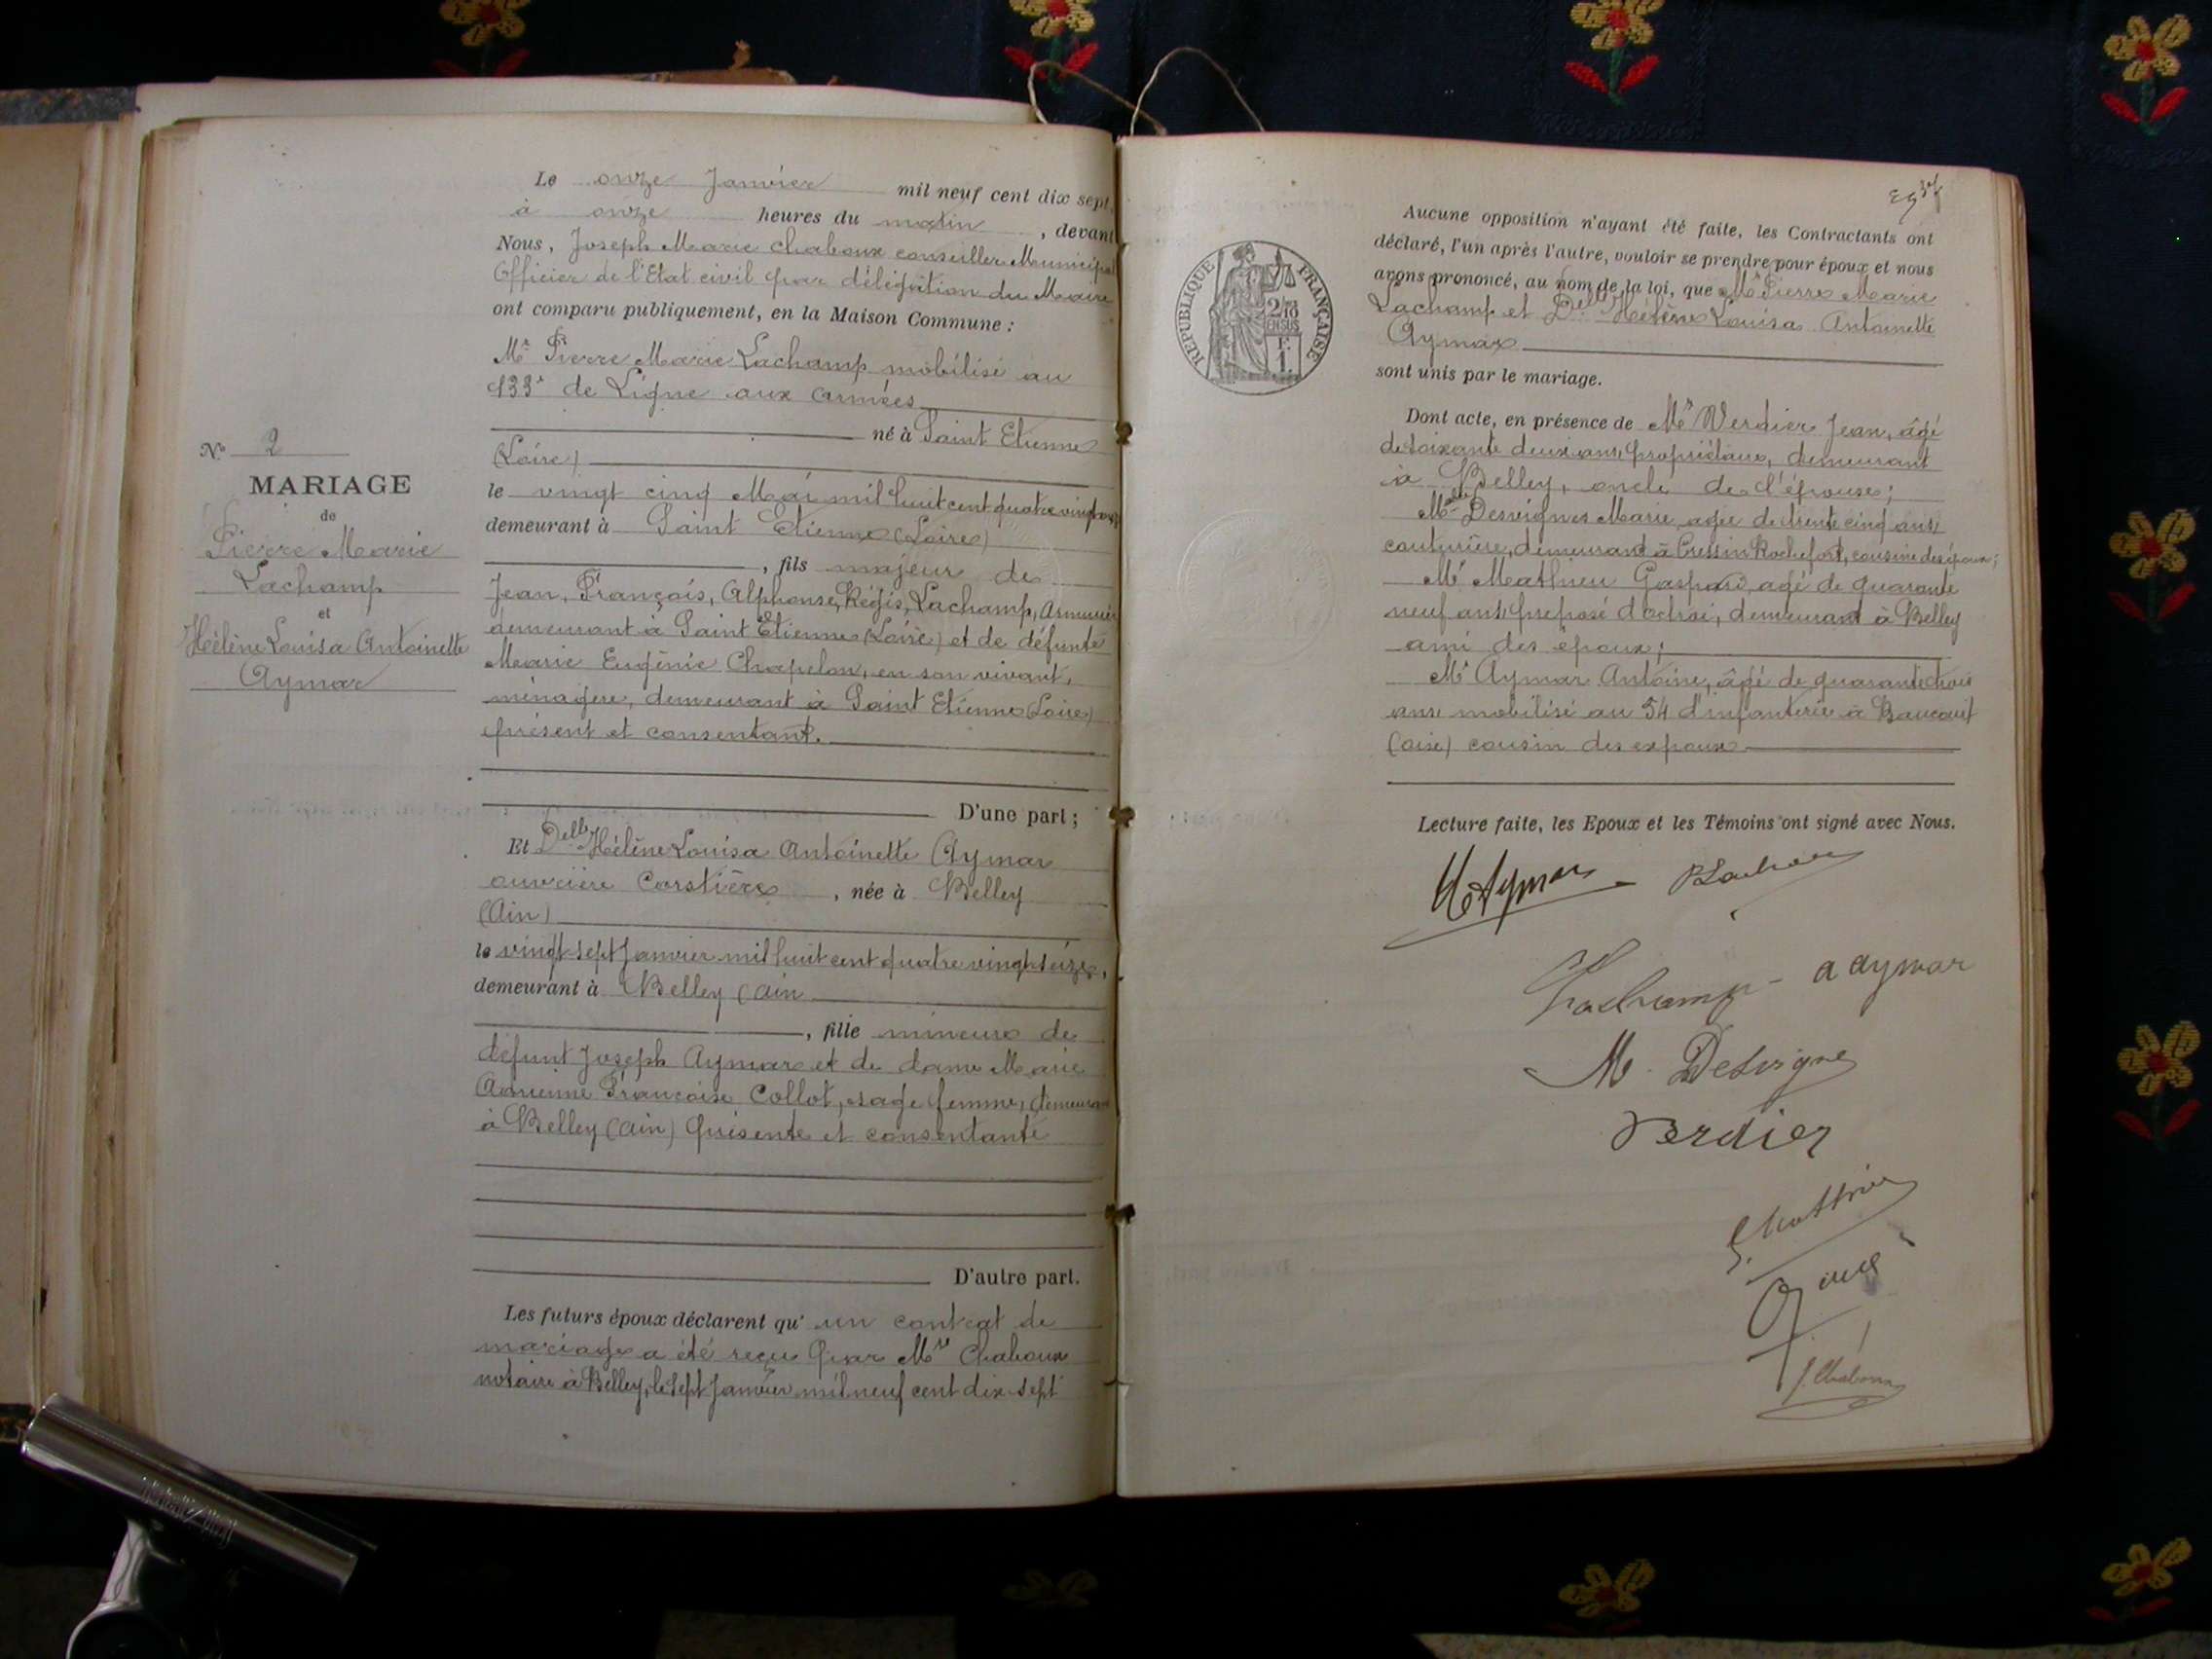 Le onze Janvier mil neuf cent dix sept,
à onze heures du matin, devant
Nous, Joseph Marie Chaboux conseiller Municipal
Officier de l'Etat civil par délégation du Maire
ont comparu publiquement, en la Maison Commune :
Mr Pierre Marie Lachamp mobilisé au
133e de Ligne aux Armées
né à Saint Etienne
(Loire)
le vingt cinq Mai mil huit cent quatre vingt
demeurant à Saint Etienne (Loire)
, fils majeur de
Jean, François, Alphonse, Régis, Lachamp, Armurier
demeurant à Saint Etienne (Loire) et de défunte
Marie Eugénie Chapelon, en son vivant,
ménagère, demeurant à Saint Etienne (Loire)
présent et consentant.
D'une part ;
Et Delle Hélène Louisa Antoinette Aymar
ouvrière Corsetière, née à Belley
(Ain)
le vingt sept Janvier mil huit cent quatre vingt seize,
demeurant à Belley (Ain
, fille mineure de
défunt Joseph Aymar et de dame Marie
Adrienne Françoise Collot, sage femme, demeurant
à Belley (Ain) présente et consentante
D'autre part.
Les futurs époux déclarent qu' un contrat de
mariage a été reçu par Me Chaboux
notaire à Belley, le sept Janvier mil neuf cent dix sept
No 2
MARIAGE
de
Pierre Marie
Lachamp
et
Hélène Louisa Antoinette
Aymar
REPUBLIQUE FRANÇAISE
2/10 EN SUS
1 F.
Aucune opposition n'ayant été faite, les Contractants ont
déclaré, l'un après l'autre, vouloir se prendre pour époux et nous
avons prononcé, au nom de la loi, que Mr Pierre Marie
Lachamp et Delle Hélène Louisa Antoinette
Aymar
sont unis par le mariage.
Dont acte, en présence de Mr Verdier Jean, âgé
de soixante deux ans, propriétaire, demeurant
à Belley, oncle de l'épouse ;
Melle Desvignes Marie, agée de trente cinq ans,
couturière, demeurant à Cressin Rochefort, cousine des époux ;
Mr Mathieu Gaspard agé de quarante
neuf ans, préposé d'octroi, demeurant à Belley
ami des époux ;
Mr Aymar Antoine, âgé de quarante trois
ans, mobilisé au 54 d'infanterie à
(Oise) cousin des expoux
Lecture faite, les Epoux et les Témoins ont signé avec Nous.
H Aymar P Lachamp
Lachamp A Aymar
M. Desvigne
Verdier
G. Mathieu
J. Chaboux